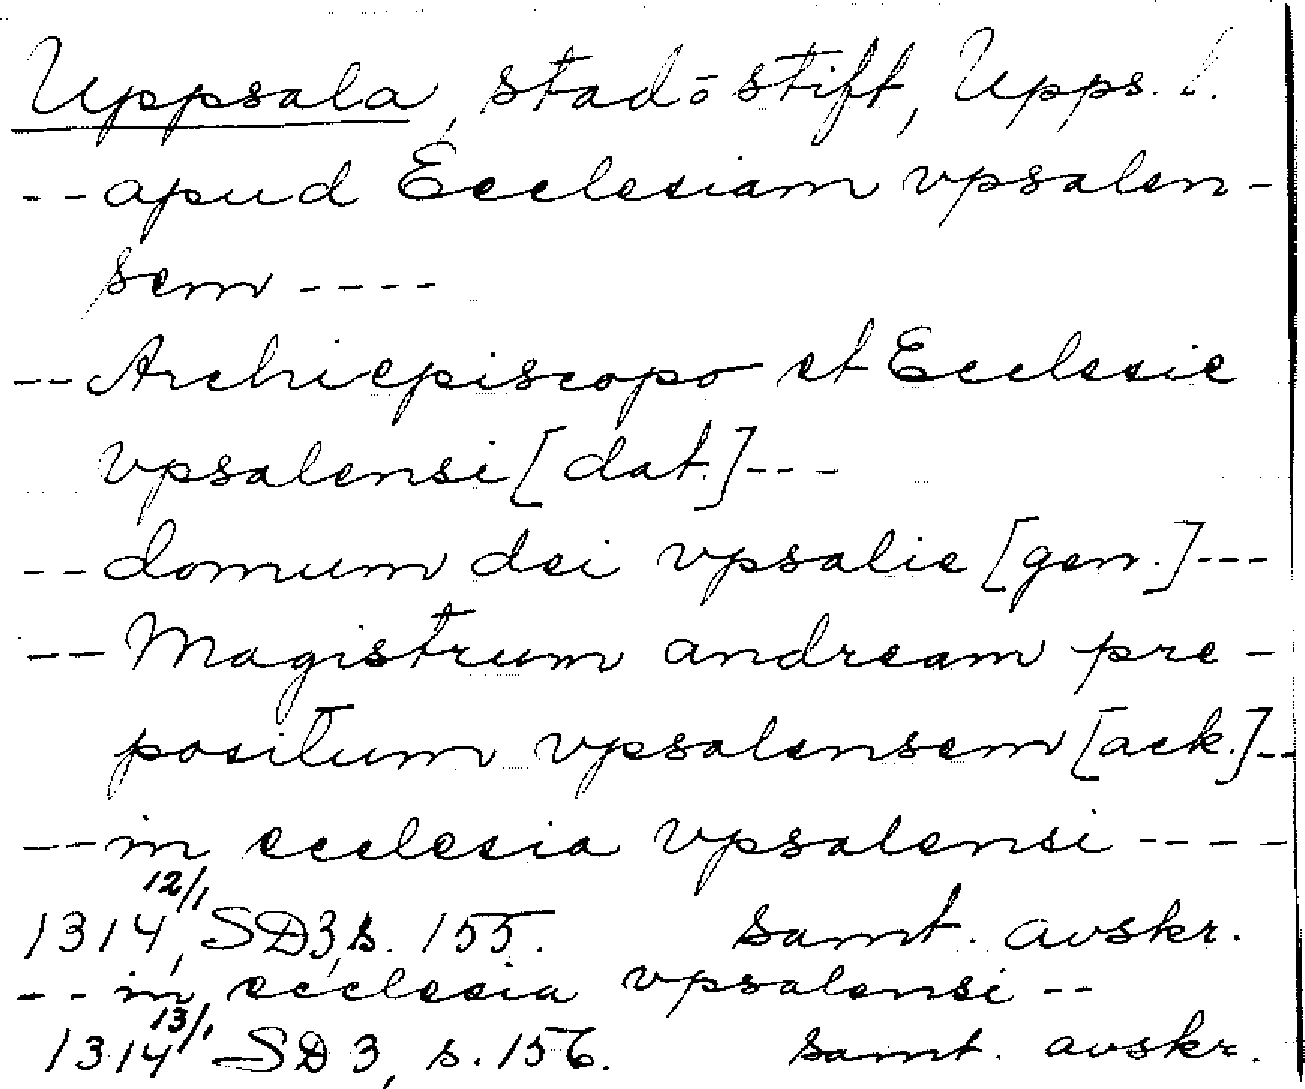 Uppsala, stad o stift, Upps. l.
-- apud Ecclesiam vpsalen-
sem ----
-- Archiepiscopo et Ecclesie
vpsalensi [dat.] ---
-- domum dei vpsalie [gen.] ---
-- Magistrum andream pre-
positum vpsalensem [ack.] --
-- in ecclesia vpsalensi ----
1314 12/1, SD 3, s. 155. samt. avskr.
-- in ecclesia vpsalensi --
1314 13/1 SD 3, s. 156. samt. avskr.